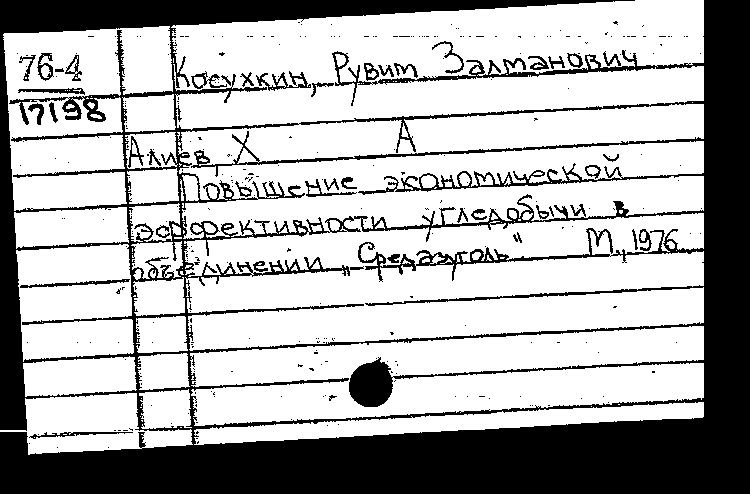 76-4
17198
Косухкин, Рувим Залманович
Алиев, Х А
Повышение экономической
эффективности угледобычи в
объединении „Средазуголь" М., 1976